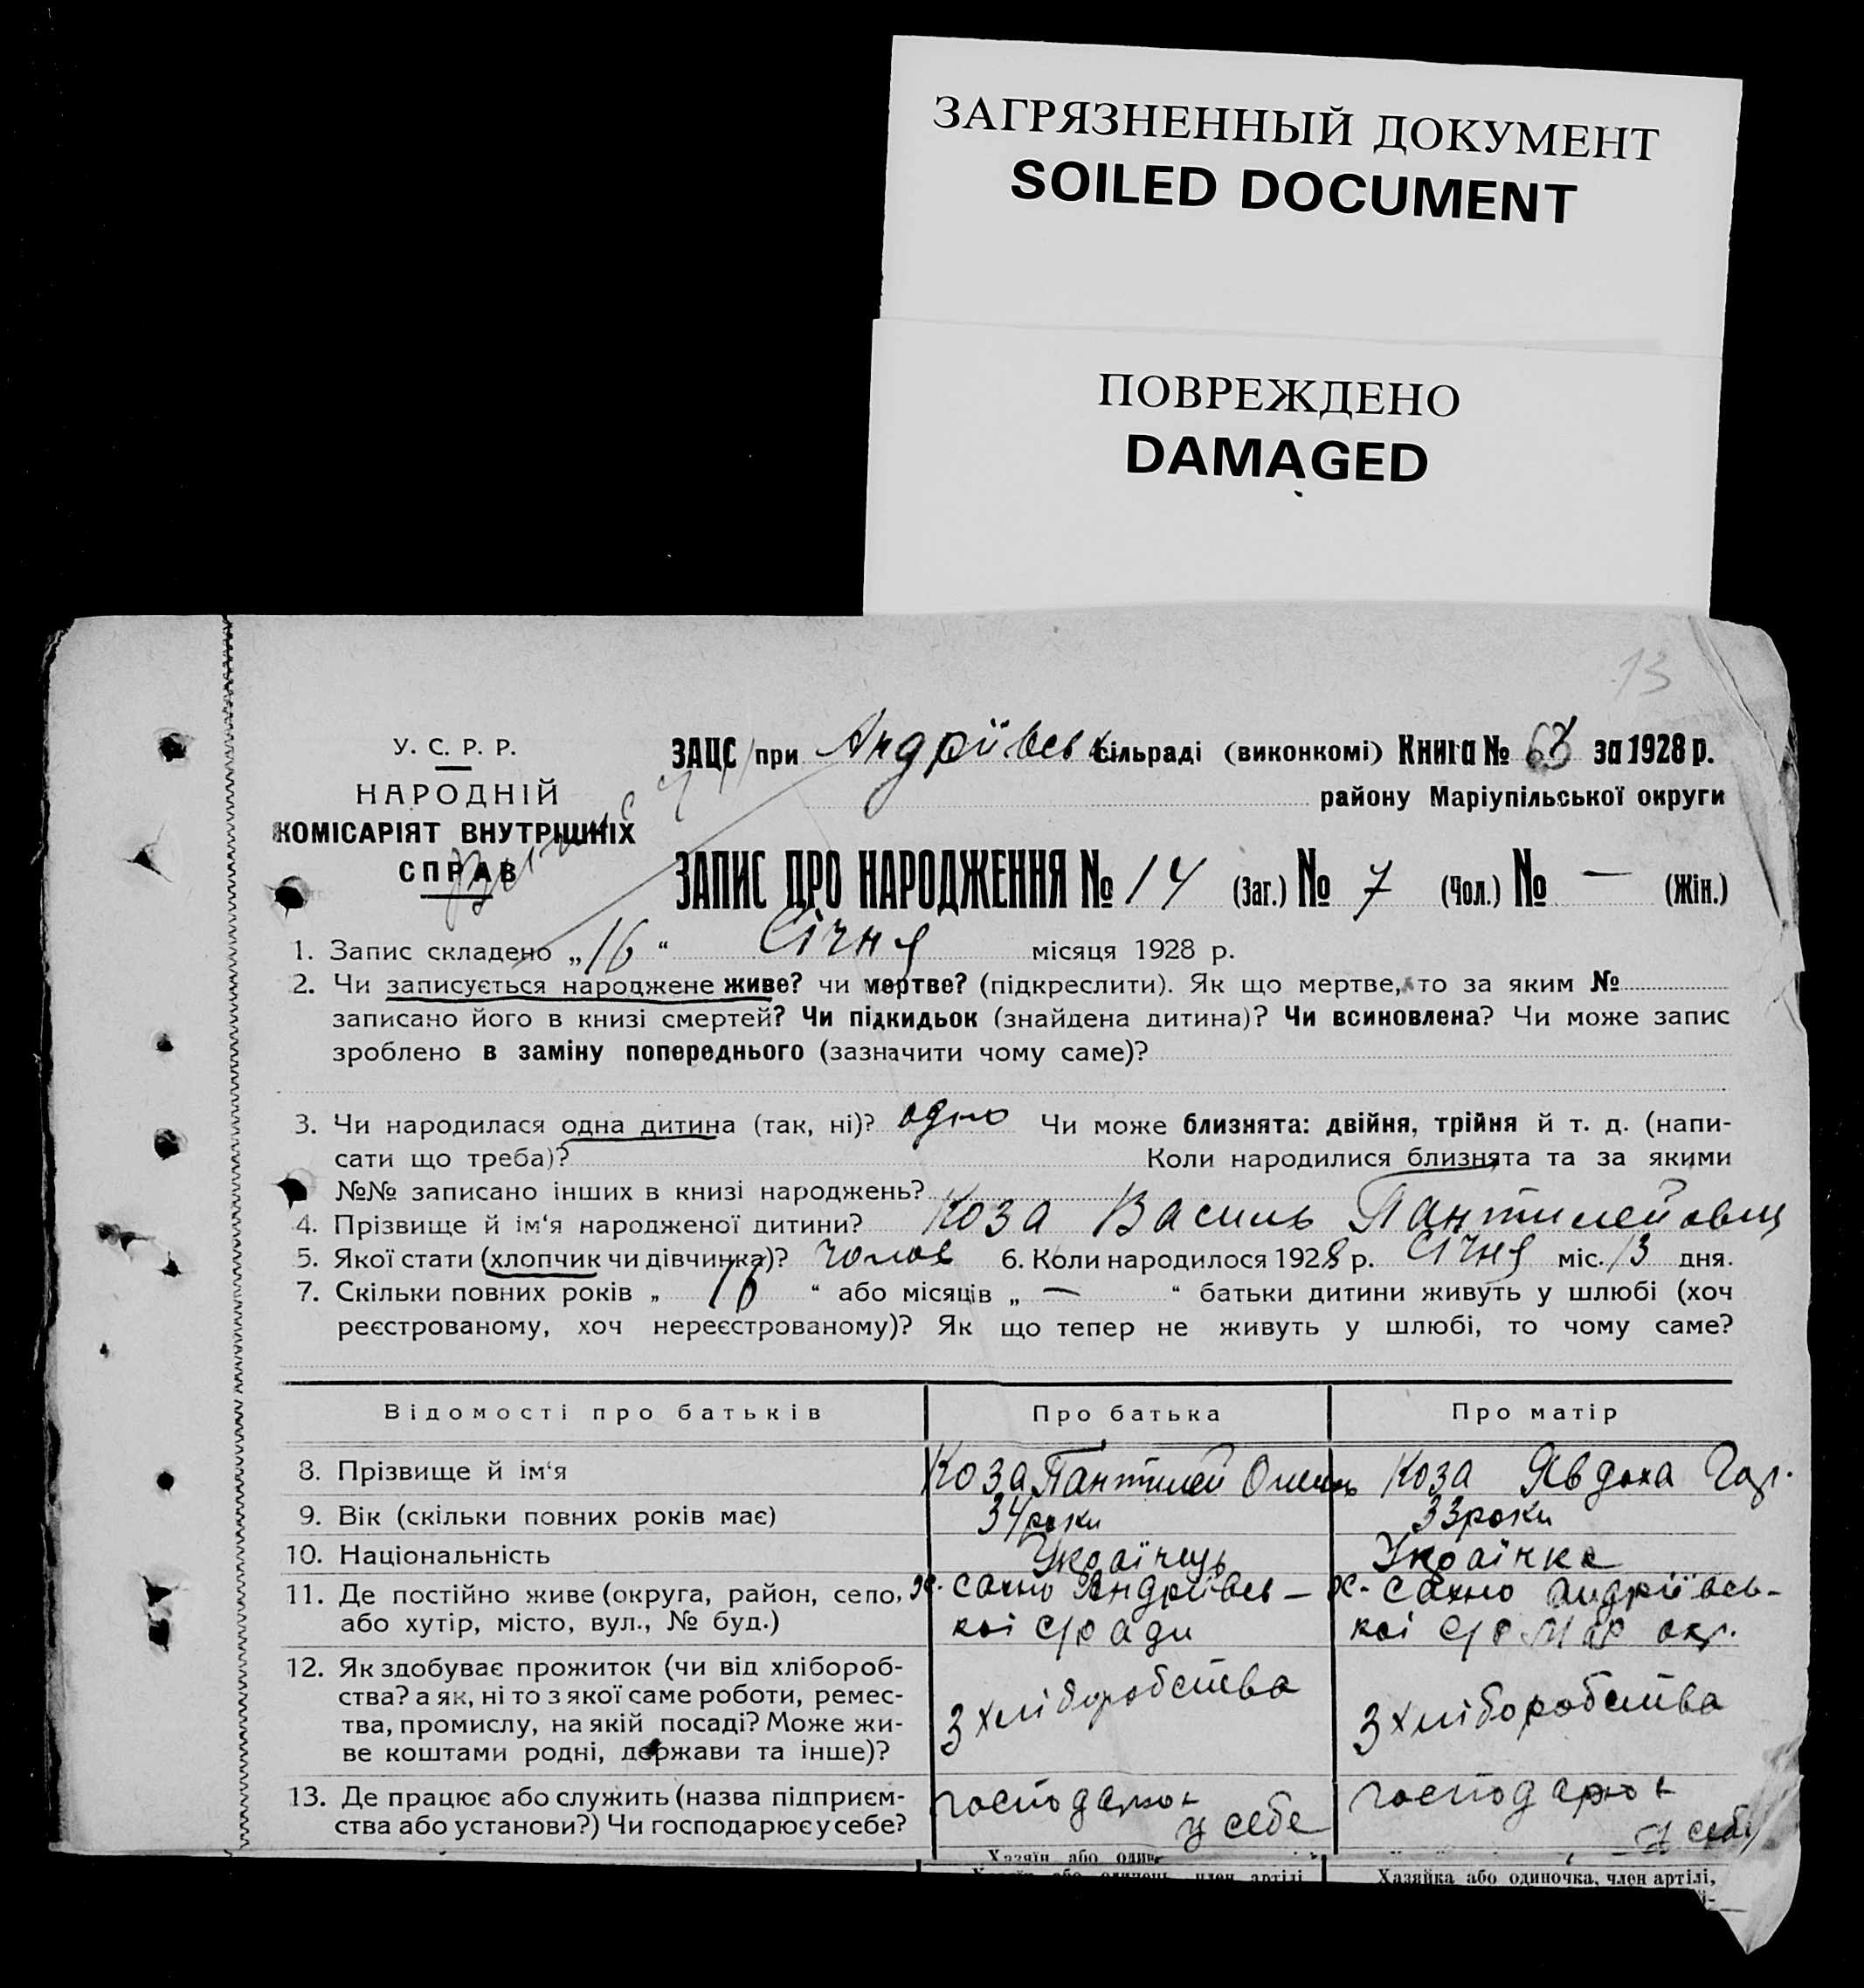 ЗАГРЯЗНЕННЫЙ ДОКУМЕНТ
SOILED DOCUMENT
ПОВРЕЖДЕНО
DAMAGED
13
У. С. Р. Р.
НАРОДНІЙ
КОМІСАРІЯТ ВНУТРІШНІХ
СПРАВ
ЗАЦС при Андріївськ сільраді (виконкомі) Книга № за 1928 р.
району Маріупільської округи
ЗАПИС ПРО НАРОДЖЕННЯ № 14 (Заг.) № 7 (Чол.) № — (Жін.)
1. Запис складено „16“ Січня місяця 1928 р.
2. Чи записується народжене живе? чи мертве? (підкреслити). Як що мертве, то за яким №
записано його в книзі смертей? Чи підкидьок (знайдена дитина)? Чи всиновлена? Чи може запис
зроблено в заміну попереднього (зазначити чому саме)?
3. Чи народилася одна дитина (так, ні)? одно Чи може близнята: двійня, трійня й т. д. (напи-
сати що треба)? Коли народилися близнята та за якими
№№ записано інших в книзі народжень?
4. Прізвище й ім‘я народженої дитини? Коза Василь Пантилейович
5. Якої стати (хлопчик чи дівчинка)? чолов 6. Коли народилося 1928 р. Січня міс. 13 дня.
7. Скільки повних років „ 16 “ або місяців „ — “ батьки дитини живуть у шлюбі (хоч
реєстрованому, хоч нереєстрованому)? Як що тепер не живуть у шлюбі, то чому саме?
Відомості про батьків Про батька Про матір
8. Прізвище й ім‘я Коза Пантилей Коза Явдоха
9. Вік (скільки повних років має) 34 роки 33 роки
10. Національність Українець Українка
11. Де постійно живе (округа, район, село, х. Сахно Андріївсь- х. Сахно Андріївсь-
або хутір, місто, вул., № буд.) кої с/ради кої с/р окр.
12. Як здобуває прожиток (чи від хлібороб-
ства? а як, ні то з якої саме роботи, ремес-
тва, промислу, на якій посаді? Може жи- З хліборобства З хліборобства
ве коштами родні, держави та інше)?
13. Де працює або служить (назва підприєм- господарює господарює
ства або установи?) Чи господарює у себе? у себе у себе
Хазяїн або один
Хазяїн або одинець, член артілі Хазяйка або одиночка, член артілі,